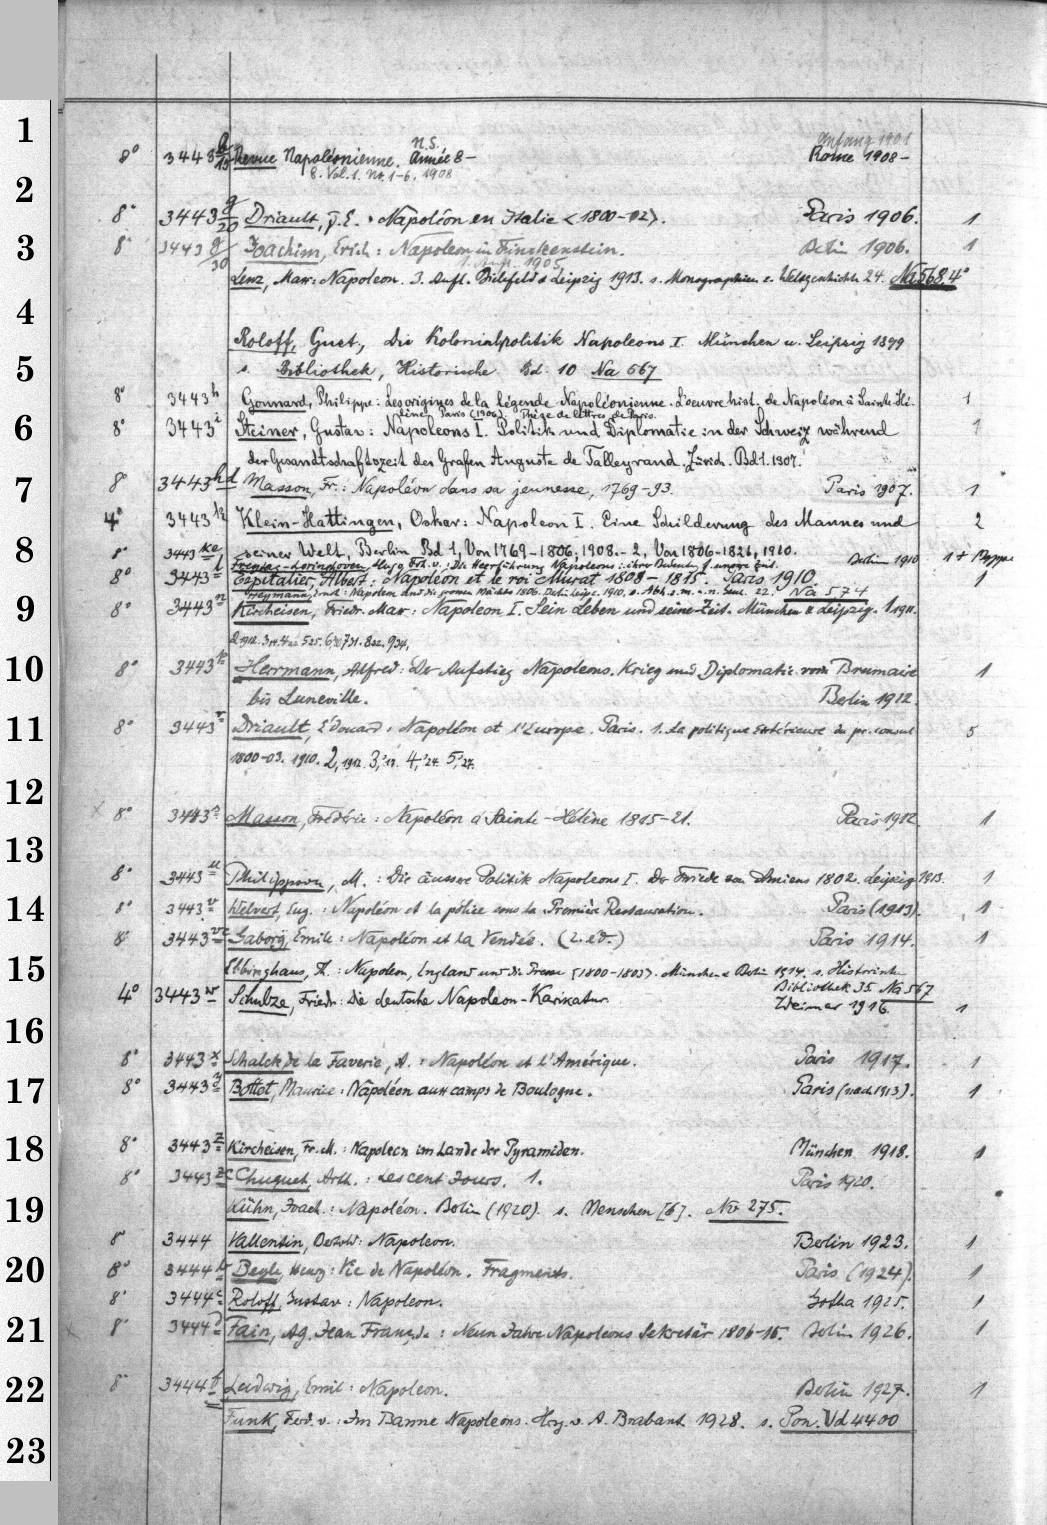 1
N.S. Anfang 1901
8° 3443 g/15 Revue Napoléonienne. Année 8- Rome 1908-
8. Vol. 1. Nr. 1-6. 1908
2
8° 3443 g/20 Driault, J. E. : Napoléon en Italie <1800-02>. Paris 1906. 1
3
8° 3443 g/30 Joachim, Erich: Napoleon in Finckenstein. Berlin 1906. 1
Lenz, Max: Napoleon. 3. Aufl. Bielefeld & Leipzig 1913. s. Monographien z. Weltgeschichte 24. Na 568. 4°
4
Roloff, Gust., Die Kolonialpolitik Napoleons I. München u. Leipzig 1899
5
s. Bibliothek, Historische Bd. 10 Na 567
8° 3443 h Gonnard, Philippe: Les origines de la légende Napoléonienne. L'oeuvre hist. de Napoléon à Sainte-Hé- 1
lène. Paris (1906). Thèse de lettres de Paris.
6
8° 3443 i Steiner, Gustav: Napoleons I. Politik und Diplomatie in der Schweiz während 1
der Gesandtschaftszeit des Grafen Auguste de Talleyrand. Zürich. Bd 1. 1907.
7
8° 3443 hd Masson, Fr.: Napoléon dans sa jeunesse, 1769-93. Paris 1907. 1
4° 3443 k Klein-Hattingen, Oskar: Napoleon I. Eine Schilderung des Mannes und 2
8
seiner Welt, Berlin Bd 1, Von 1769-1806, 1908. - 2, Von 1806-1821, 1910.
8° 3443 ke Freytag-Loringhoven, Hugo Frh. v.: Die Heerführung Napoleons in ihrer Bedeutg f. unsere Zeit. Berlin 1910 1 + Mappe
8° 3443 l Espitalier, Albert: Napoléon et le roi Murat 1808-1815. Paris 1910. 1
Heymann, Ernst: Napoleon und die grossen Mächte 1806. Berlin Leipz. 1910. s. Abh. z. m. u. n. Gesch. 22. Na 574
9
8° 3443 n Kircheisen, Friedr. Max: Napoleon I. Sein Leben und seine Zeit. München & Leipzig. 1. 1911.
10
8° 3443 p Herrmann, Alfred: Der Aufstieg Napoleons. Krieg und Diplomatie vom Brumaire 1
bis Luneville. Berlin 1912.
11
8° 3443 r Driault, Édouard: Napoléon et l'Europe. Paris. 1. La politique extérieure du pr. consul 5
1800-03. 1910. 2, 1912. 3, '17. 4, '24. 5, '27.
12
8° 3443 s Masson, Frédéric: Napoléon à Sainte-Hélène 1815-21. Paris 1912 1
13
8° 3443 u Philippson, M. : Die äussere Politik Napoleons I. Der Friede von Amiens 1802. Leipzig 1913. 1
14
8° 3443 v Welvert, Eug. : Napoléon et la police sous la Première Restauration. Paris (1913). 1
8° 3443 vc Gabory, Emile: Napoléon et la Vendée. (2. éd.) Paris 1914. 1
15
Ebbinghaus, Th. : Napoleon, England und die Presse (1800-1803). München & Berlin 1914. s. Historische
Bibliothek 35. Na 567
4° 3443 w Schulze, Friedr: Die deutsche Napoleon-Karikatur. Weimar 1916. 1
16
8° 3443 x Schalck de la Faverie, A. : Napoléon et l'Amérique. Paris 1917. 1
17
8° 3443 y Bottet, Maurice: Napoléon aux camps de Boulogne. Paris (nach 1913). 1
18
8° 3443 z Kircheisen, Fr. M.: Napoleon im Lande der Pyramiden. München 1918. 1
8° 3443 zc Chuquet, Arth. : Les cent Jours. 1. Paris 1920.
19
Kühn, Joach.: Napoléon. Berlin (1920). s. Menschen [6]. Nv 275.
8° 3444 Vallentin, Berthold: Napoleon. Berlin 1923. 1
20
8° 3444 b Beyle, Henry: Vie de Napoléon. Fragments. Paris (1924). 1
8° 3444 c Roloff, Gustav: Napoleon. Gotha 1925. 1
21
8° 3444 d Fain, Ag. Jean Franç. de: Neun Jahre Napoleons Sekretär 1806-15. Berlin 1926. 1
22
8° 3444 f Ludwig, Emil: Napoleon. Berlin 1927. 1
Funk, Ferd. v. : Im Banne Napoleons. Hrg. v. A. Brabant. 1928. s. Pon. Vd 4400
23